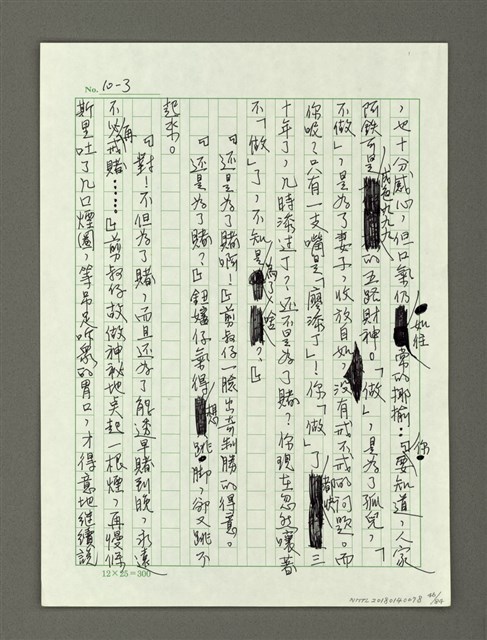 No. 10-3
，也十分感心，但口氣仍如往常的揶揄…「你要知道，人家
阿鉄可是成色九九九的五路財神。「做」，是為了孤兒，「
不做」，是為了妻子，收放自如，沒有戒不戒的問題。而
你呢？只有一支嘴是「廖添丁」！你「做」了賭快三
十年了，几時添过丁？还不是為了賭？你現在忽然嚷著
不「做」了，不知是為了啥？」
「还是為了賭啊！」剪叔仔一臉出奇制勝的得意。
「还是為了賭？」鈕嬸仔氣得想跳脚，卻又跳不
起來。
「對！不但為了賭，而且还為了能透早賭到晚，永遠
不必再戒賭……」剪叔仔故做神秘地点起一根煙，再慢條
斯里吐了几口煙圈，等吊足听衆的胃口，才得意地継續說
12×25=300
NMTL20180140078
46/64